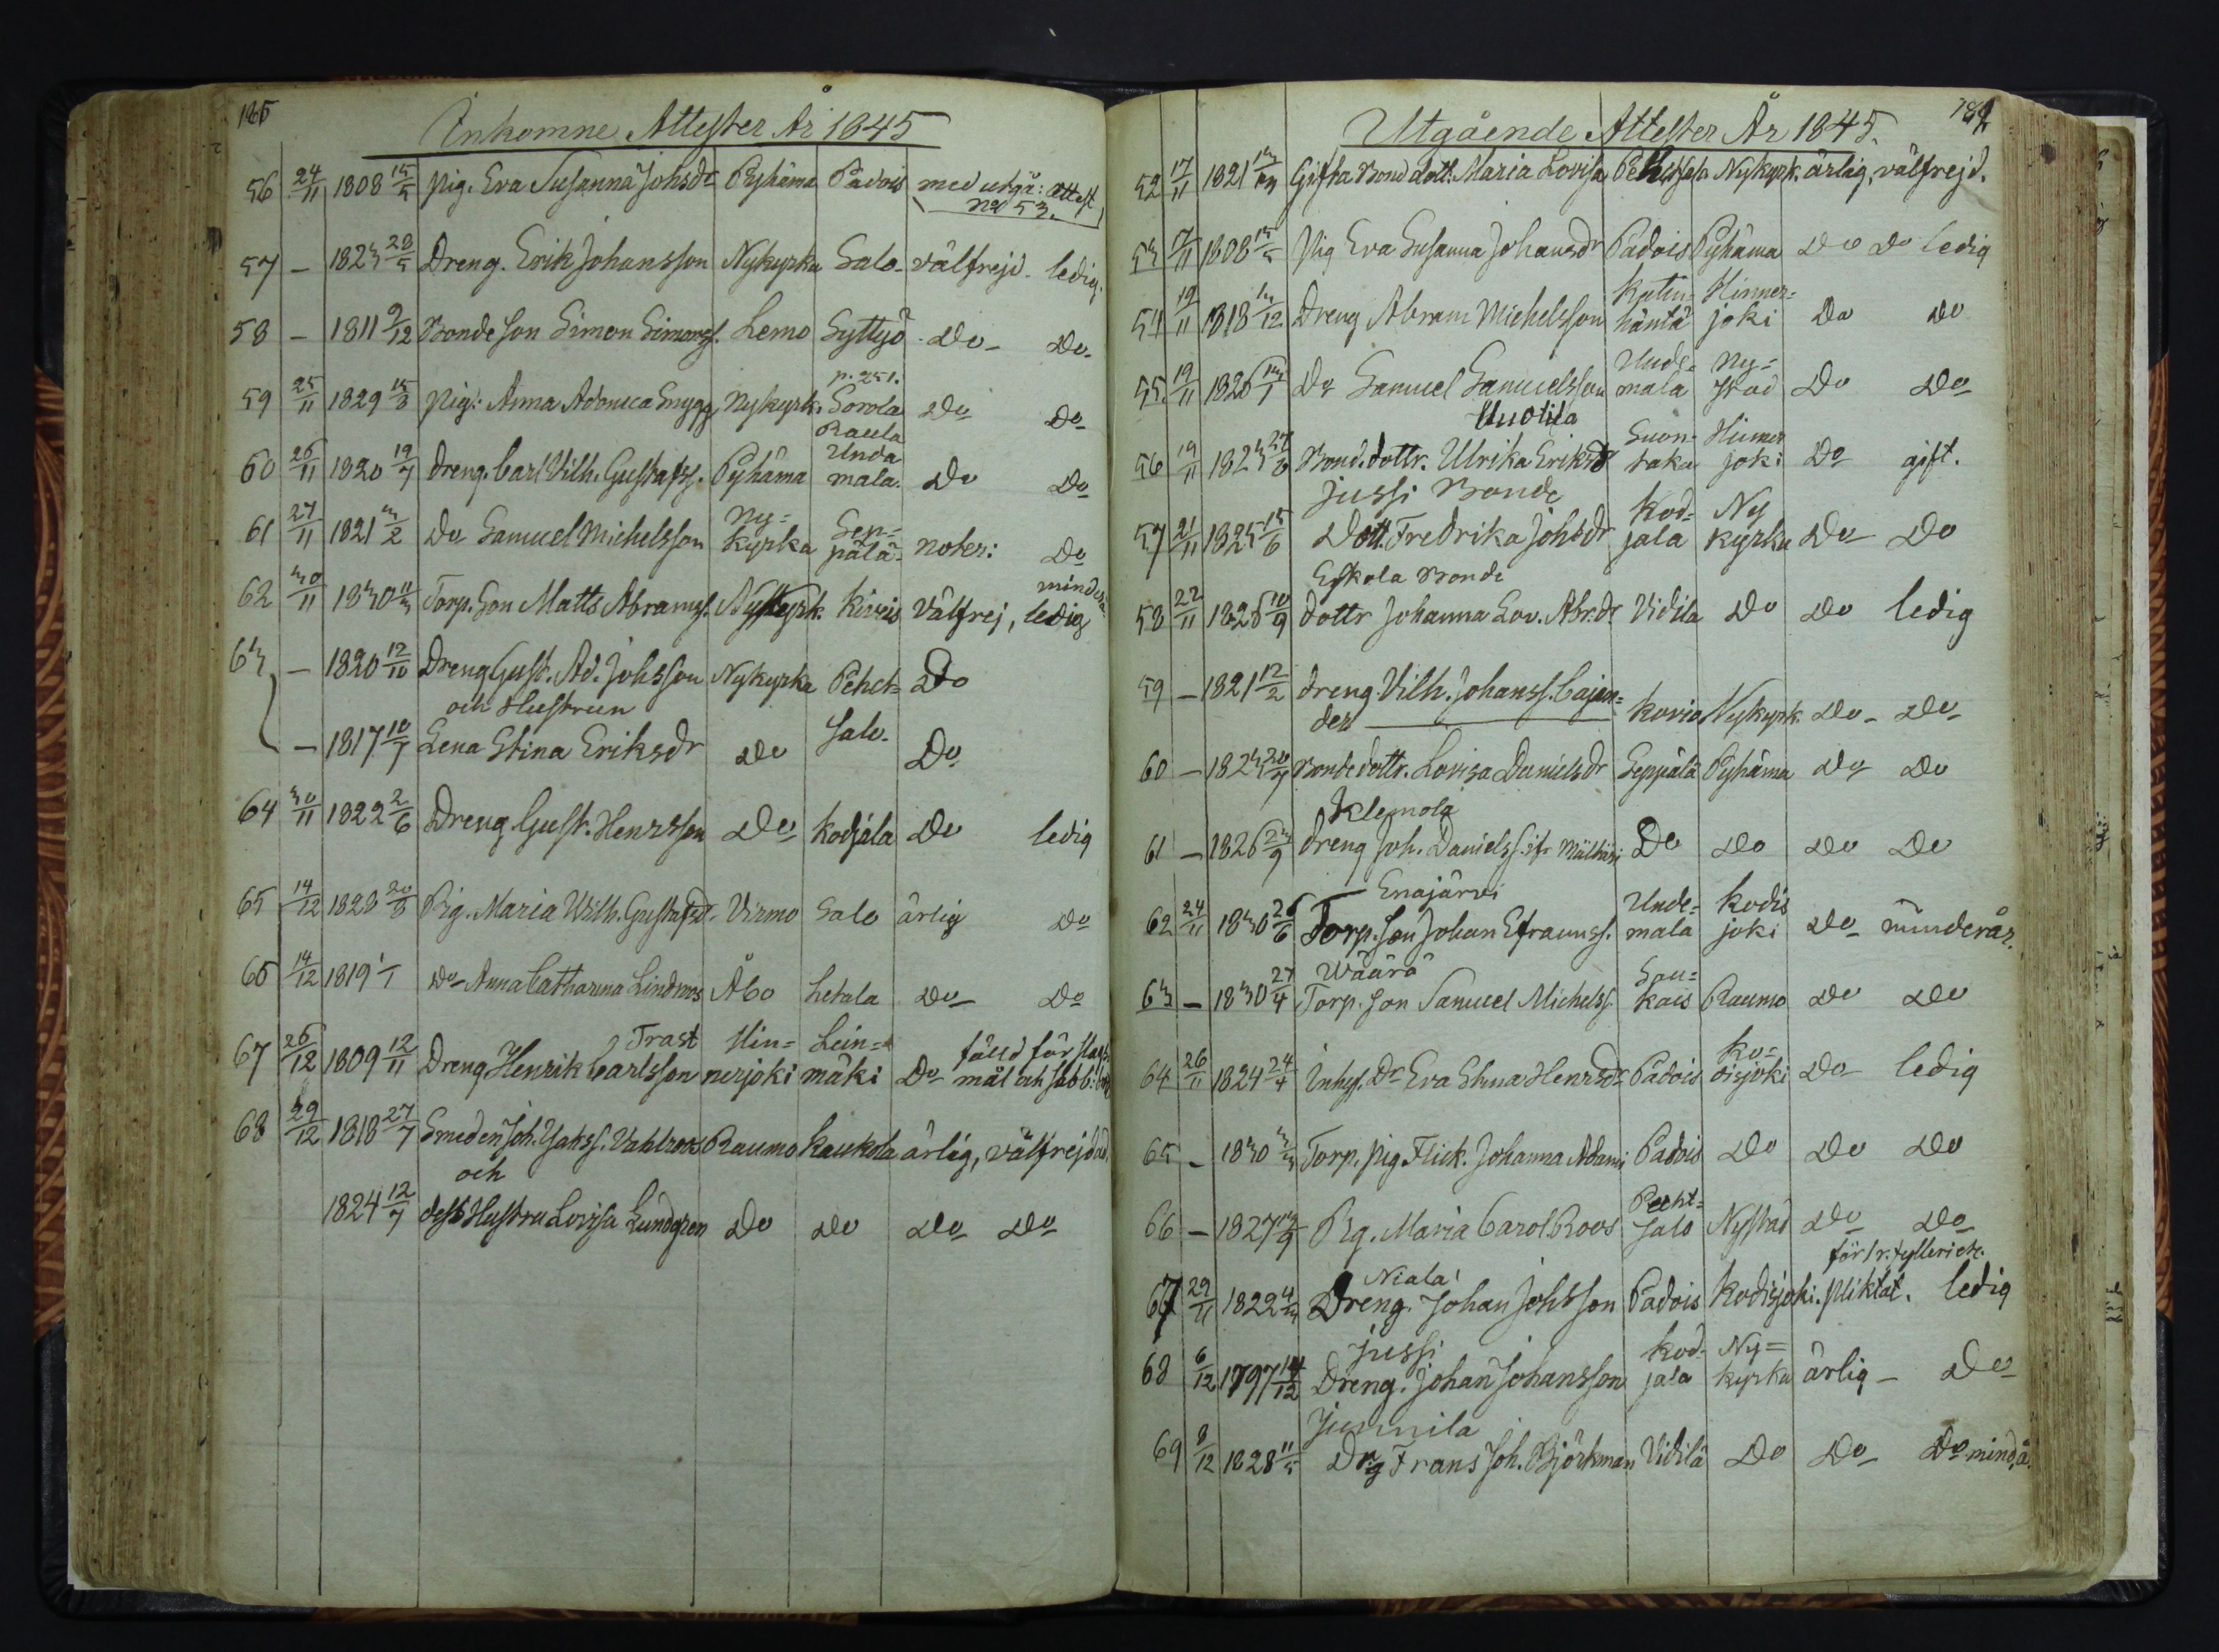 Inkomne Attester År 1845
56 24/11 1808 15/5 Pig. Eva Susanna Johsdr Pyhäma Padois med utgå: attest
No 53.
57 – 1823 28/5 Dreng. Erik Johansson Nykyrka Salo välfrejd. ledig.
58 – 1811 9/12 Bonde Son Simon Simonss. Lemo Syttyö Do Do
p. 251.
59 25/11 1829 15/8 Pig: Anna Adonica Snygg Nykyrk. Sorola Do Do
Raula
60 26/11 1820 19/7 Dreng. Carl Vilh. Gustafss. Pyhäma Unda mala. Do Do
61 27/11 1821 3/2 Do Samuel Michelsson Ny= kyrka Sep= pälä noter: Do
62 30/11 1830 11/3 Torp. Son Matts Abramss. Nykyrk. Kivis Välfrej, ledig minderå
63 – 1820 12/10 Dreng Gust. Ad. Johsson Nykyrka Pehct= Do
och Hustrun
– 1817 10/7 Lena Stina Eriksdr Do Salo Do
64 30/11 1822 2/6 Dreng Gust. Henrsson Do Kodjala Do ledig
65 14/12 1828 20/8 Pig. Maria Wilh. Gustafsdr Virmo Salo ärlig Do
66 14/12 1819 1/1 Do Anna Catharina Lindroos Åbo Letala Do Do
Trast
67 26/12 1809 12/11 Dreng Henrik Carlsson Hin= nerjoki Lein= mäki Do fälld för slags= mål och sabb:
68 29/12 1818 27/7 Smeden Joh. Jakss. Vahlroos Raumo Kaukola ärlig, välfrejdad
och
1824 12/7 dess Hustru Lovisa Lundgren Do Do Do Do
Utgående Attester År 1845.
52 17/11 1821 Gifta Bond dott. Maria Lovisa Nykyrk. ärlig, välfrejd.
53 17/11 1808 15/5 Pig Eva Susanna Johansdr Padois Pyhäma Do Do ledig
54 19/11 1818 /12 Dreng Abram Michelsson Katin= häntä Hinner= joki Do Do
55 19/11 1826 /1 Do Samuel Samuelsson Unde= mala Ny= stad Do Do
Uuotila
56 19/11 1823 27/8 Bond. dottr. Ulrika Eriksdr Suon= taka Hinner joki Do gift.
Jussi Bonde
57 21/11 1825 15/6 Dott. Fredrika Johsdr Kod= jala Ny kyrka Do Do
Eskola Bonde
58 22/11 1826 10/9 dottr Johanna Lov. Abr.dr Vidila Do Do ledig
59 – 1821 12/2 dreng Vilh. Johanss. Cajan=
der Kovio Nykyrk. Do Do
60 – 1823 20/7 Bonde dottr. Lovisa Danielsdr Seppälä Pyhäma Do Do
Klemola
61 – 1826 23/9 dreng Joh. Danielss. Do Do Do Do
Enajärvi
62 24/11 1830 26/6 Torp. Son Johan Efraimss. Unde= mala Kodis joki Do minderår.
Wäärä
63 – 1830 27/4 Torp. Son Samuel Michelss. Sou= kais Raumo Do Do
64 26/11 1824 24/4 Inhys. Dr Eva Stina Henrsdr Padois Ko= disjoki Do ledig
65 – 1830 3/3 Torp. pig Flick. Johanna Adami Padois Do Do Do
66 – 1827 /9 Pig. Maria Carol Roos Pecht= Salo Nystad Do Do
Niala
för fylleri etc.
67 29/11 1822 4/3 Dreng. Johan Johsson Padois Kodisjoki. pliktat. ledig
Jussi
68 6/12 1797 14/12 Dreng. Johan Johansson Kod= jala Ny= kyrka ärlig – Do
Junnila
69 8/12 1828 11/5 Drg Frans Joh. Björkman Vidilä Do Do Do mind.å.